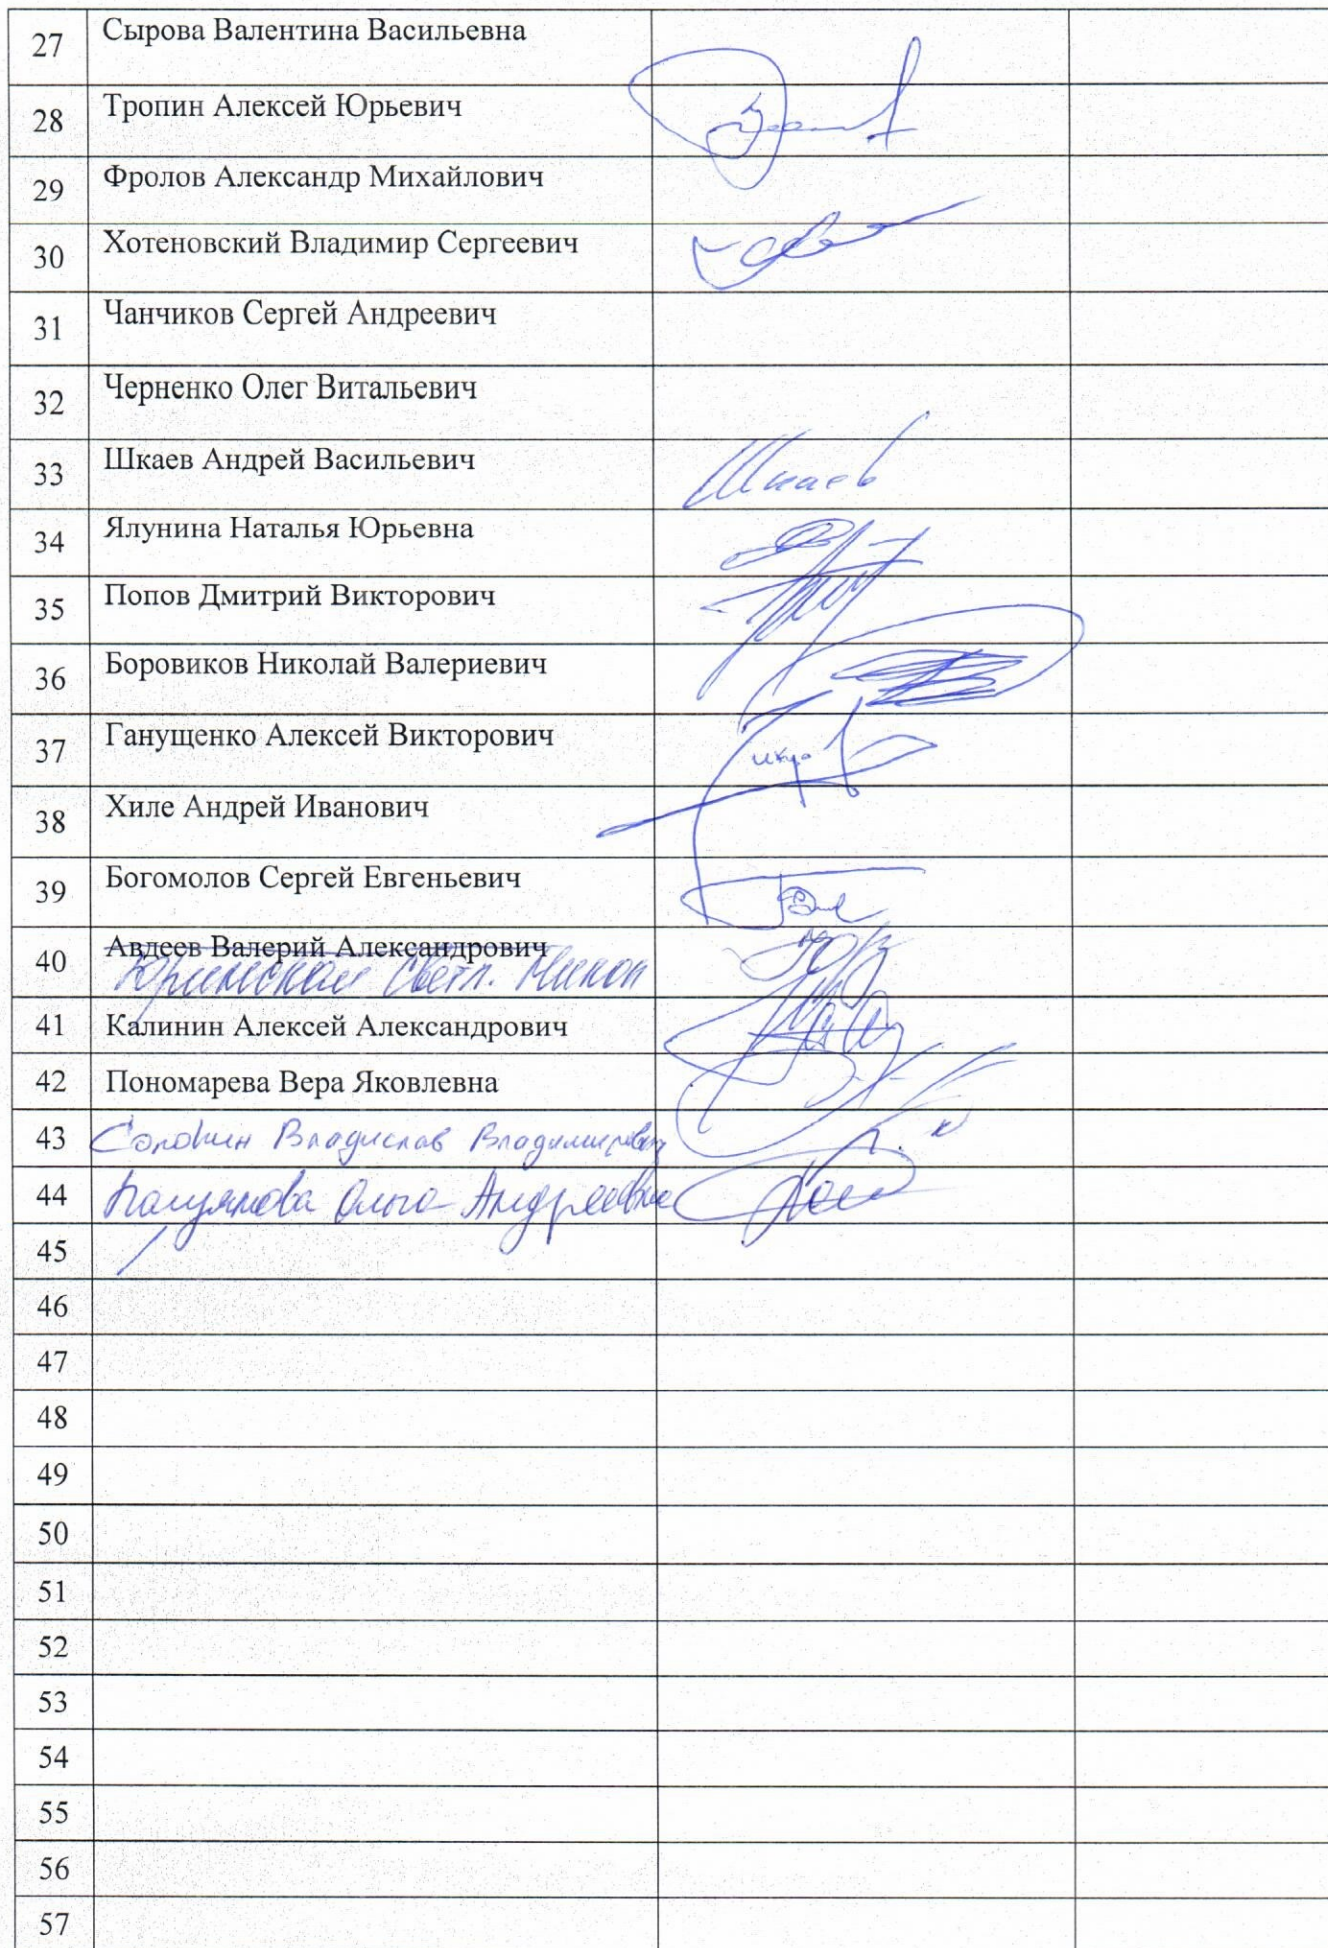 27 Сырова Валентина Васильевна
28 Тропин Алексей Юрьевич
29 Фролов Александр Михайлович
30 Хотеновский Владимир Сергеевич
31 Чанчиков Сергей Андреевич
32 Черненко Олег Витальевич
33 Шкаев Андрей Васильевич Шкаев
34 Ялунина Наталья Юрьевна
35 Попов Дмитрий Викторович
36 Боровиков Николай Валериевич
37 Ганущенко Алексей Викторович
38 Хиле Андрей Иванович
39 Богомолов Сергей Евгеньевич
40 Авдеев Валерий Александрович
Светл. Никол
41 Калинин Алексей Александрович
42 Пономарева Вера Яковлевна
43 Владислав Владимирович
44 Ольга Андреевна
45
46
47
48
49
50
51
52
53
54
55
56
57